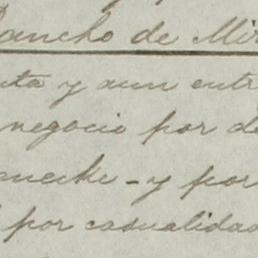 Rancho de Mir
uta y aun entr
negocio por de
necke - y por
por casualidad